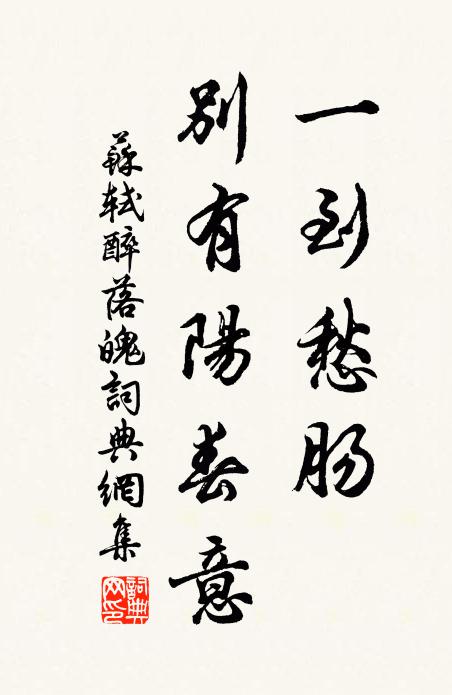 一到愁肠
別有陽春意
蘇軾醉落魄詞典網集
詞典
网印